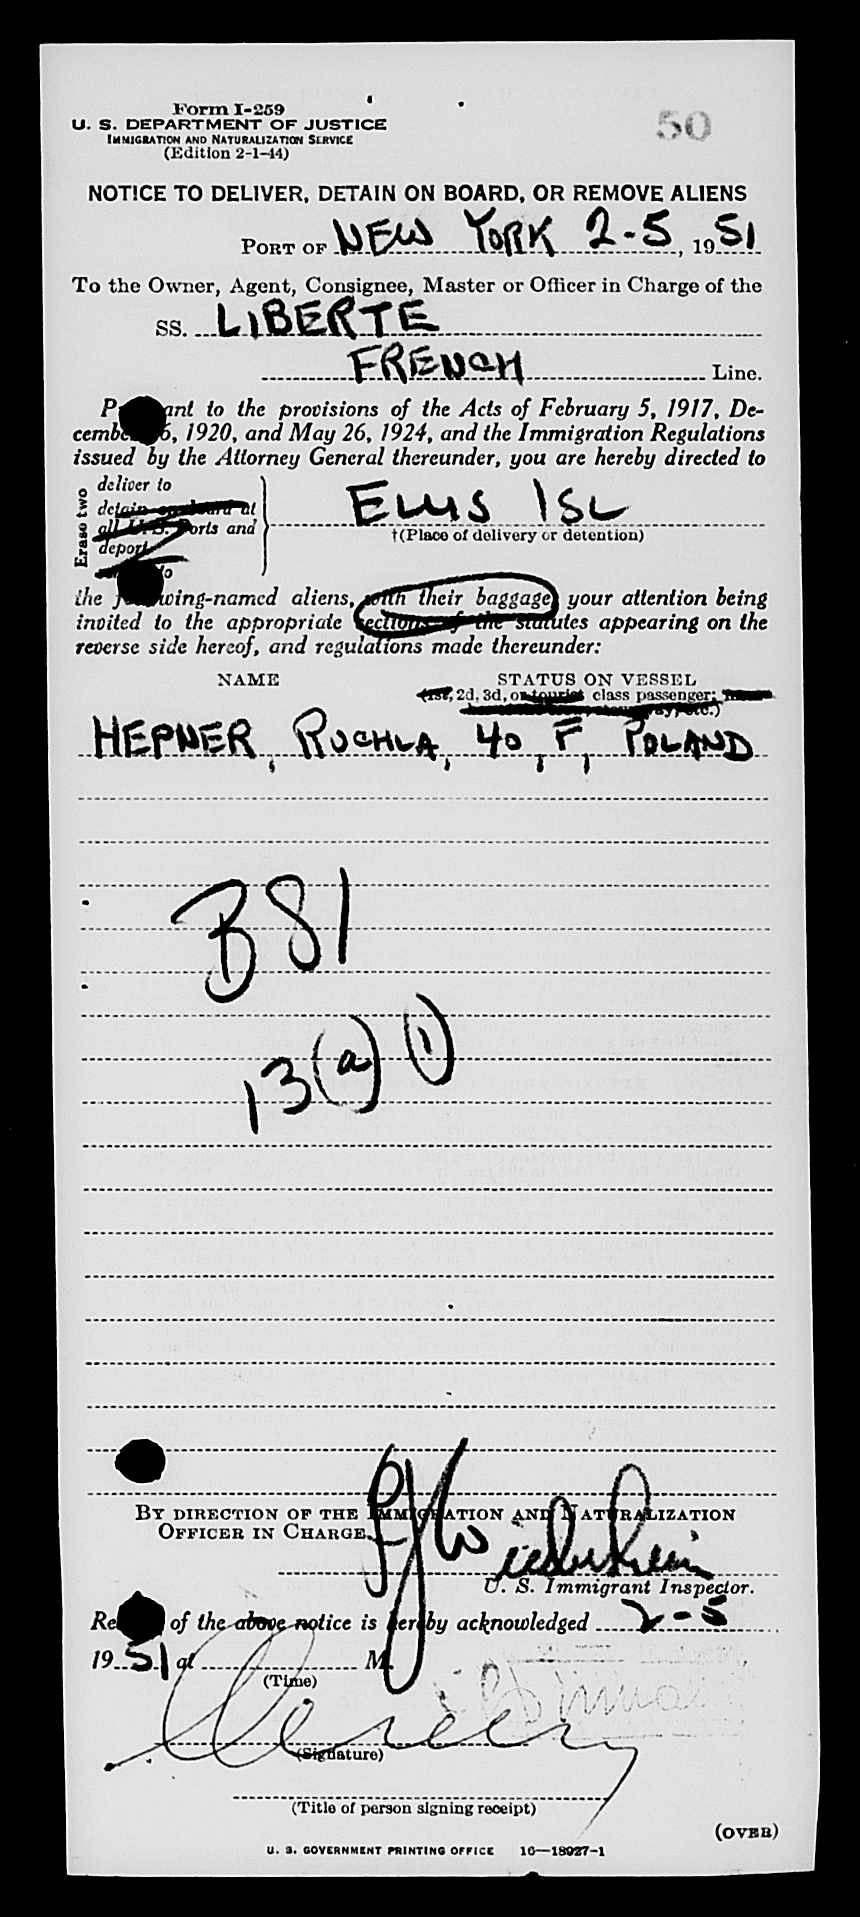 Form I-259
U. S. DEPARTMENT OF JUSTICE
IMMIGRATION AND NATURALIZATION SERVICE
(Edition 2-1-44)
50
NOTICE TO DELIVER, DETAIN ON BOARD, OR REMOVE ALIENS
PORT OF NEW YORK 2-5, 1951
To the Owner, Agent, Consignee, Master or Officer in Charge of the
SS. LIBERTE
FRENCH Line.
to the provisions of the Acts of February 5, 1917, De-
6, 1920, and May 26, 1924, and the Immigration Regulations
issued by the Attorney General thereunder, you are hereby directed to
Erase two
deliver to
detain on board at
all U.S. Ports and
deport
to
ELLIS ISL
†(Place of delivery or detention)
the aliens, with their baggage, your attention being
invited to the appropriate sections of the statutes appearing on the
reverse side hereof, and regulations made thereunder:
NAME STATUS ON VESSEL
(1st, 2d, 3d, or tourist class passenger;
etc.)
HEPNER, RUCHLA, 40, F, POLAND
B 81
13(a)(1)
BY DIRECTION OF THE IMMIGRATION AND NATURALIZATION
OFFICER IN CHARGE.
U. S. Immigrant Inspector.
of the above notice is hereby acknowledged 2-5
1951 at M.
(Time)
(Signature)
(Title of person signing receipt)
(OVER)
U. S. GOVERNMENT PRINTING OFFICE 16—18927-1